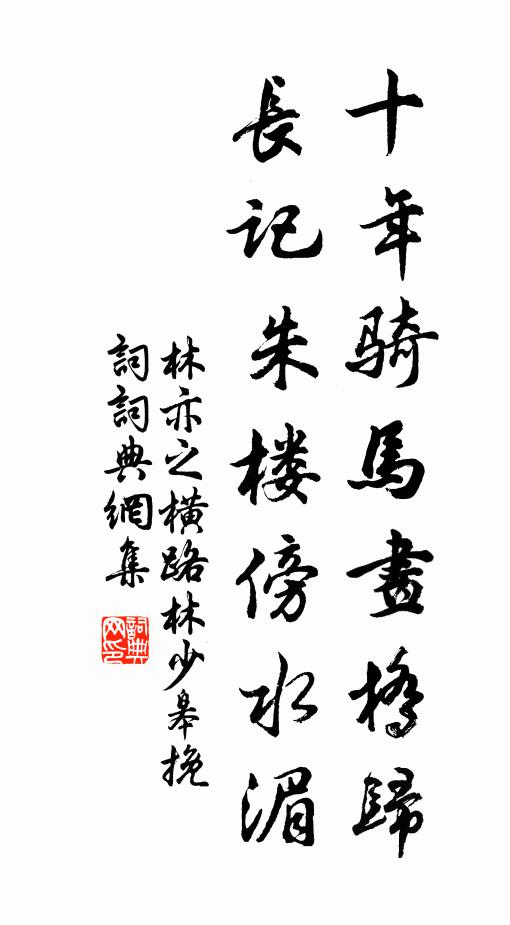 十年騎馬畫橋歸
長記朱楼傍水湄
林亦之橫路林少皋挽
詞詞典網集
詞典網印